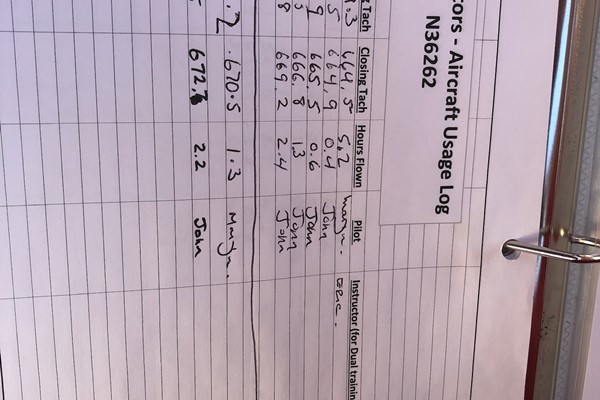 cors - Aircraft Usage Log
N36262
g Tach Closing Tach Hours Flown Pilot Instructor (for Dual trainin
.3 664.5 5.2 Martyn.
5 664.9 0.4 John
9 665.5 0.6 John
5 666.8 1.3 John
8 669.2 2.4 John
.2 .670.5 1.3 Martyn.
5 672.7 2.2 John